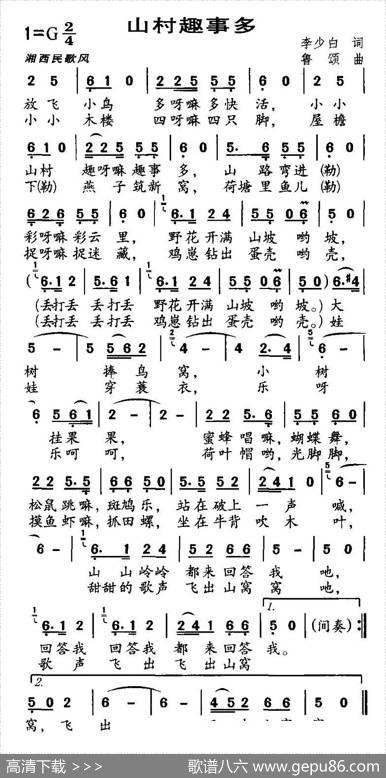 山村趣事多
1=G 2/4
李少白 词
湘西民歌风
鲁 颂 曲
2 5 | 6 1 0 | 2 2 5 5 5 | 6 0 | 2 5 |
放飞 小鸟 多呀嘛多快 活, 小小
小小 木楼 四呀嘛四只 脚, 屋檐
6 1 0 | 2 2 5 5 5 | 6 0 | 5. 6 5 5 |
山村 趣呀嘛趣事 多, 山 路弯进(勒)
下(勒) 燕子筑新 窝, 荷塘里鱼儿(勒)
6 2 6 5 5 | 6 0 | 6.1 2 4 | 5 5 0 6 | 6 0 |
彩呀嘛彩云 里, 野花开满 山坡 哟 坡,
捉呀嘛捉迷 藏, 鸡崽钻出 蛋壳 哟 壳,
(6.1 2 | 6.1 2 | 6.1 2 4 | 5 5 0 6 | 5 0) 6.#4 |
(丢打丢 丢打丢 野花开满 山坡 哟 坡。) 大
(丢打丢 丢打丢 鸡崽钻出 蛋壳 哟 壳。) 娃
5 - | 5 1 6 | 2 - | 4 - | 2. 4 | 6 - |
树 捧鸟 窝, 小 树
娃 穿蓑 衣, 乐 呀
6 | 5 6 1 | 2 - | 2 - | 2 2 5. 6 | 5 5 6 0 |
挂果 果, 蜜蜂唱嘛, 蝴蝶舞,
乐呵 呵, 荷叶帽哟, 光脚脚,
2 2 5. 5 | 5 5 6 0 | 5 5 1 6 | 2 4 1 0 | 5 - |
松鼠跳嘛, 斑鸠乐, 站在破上 一声 喊,
摸鱼虾嘛, 抓田螺, 坐在牛背 吹木 叶,
6 - | 6. 1 | 2 4 | 2 1 6 6 | 5 - | 6 - |
山 山岭岭 都来回答 我 吔,
甜甜的歌声 飞出山窝 窝 吔,
6.1 2 | 6.1 2 | 2 4 1 6 6 | 5 0 | (间奏) :|
1.
回答我 回答我 都 来回答 我。
歌 声 飞 出 飞出山窝
2.
5 0 2 | 6 - | 6 - |
窝, 飞 出
高清下载 >>>
歌谱八六 www.gepu86.com